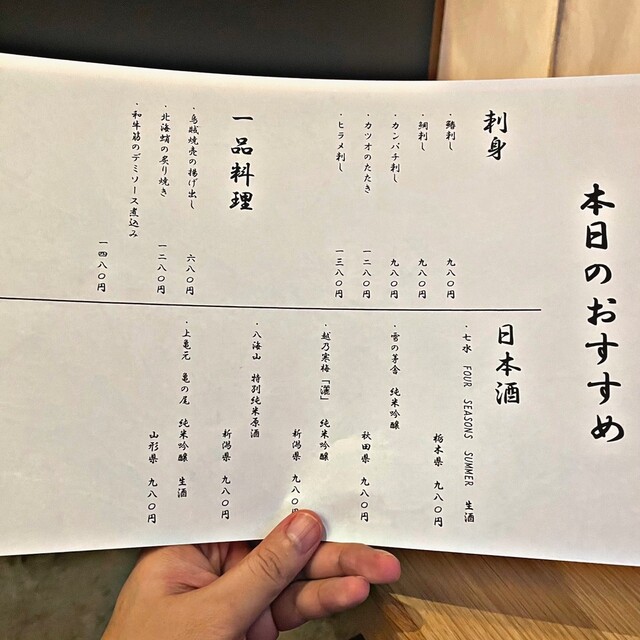 本日のおすすめ
刺身
・鰆刺し 九八〇円
・鯛刺し 九八〇円
・カンパチ刺し 九八〇円
・カツオのたたき 一二八〇円
・ヒラメ刺し 一三八〇円
一品料理
・烏賊焼売の揚げ出し 六八〇円
・北海蛸の炙り焼き 一二八〇円
・和牛筋のデミソース煮込み 一四八〇円
日本酒
・七水 FOUR SEASONS SUMMER 生酒
栃木県 九八〇円
・雪の茅舎 純米吟醸
秋田県 九八〇円
・越乃寒梅「灑」 純米吟醸
新潟県 九八〇円
・八海山 特別純米原酒
新潟県 九八〇円
・上亀元 亀の尾 純米吟醸 生酒
山形県 九八〇円